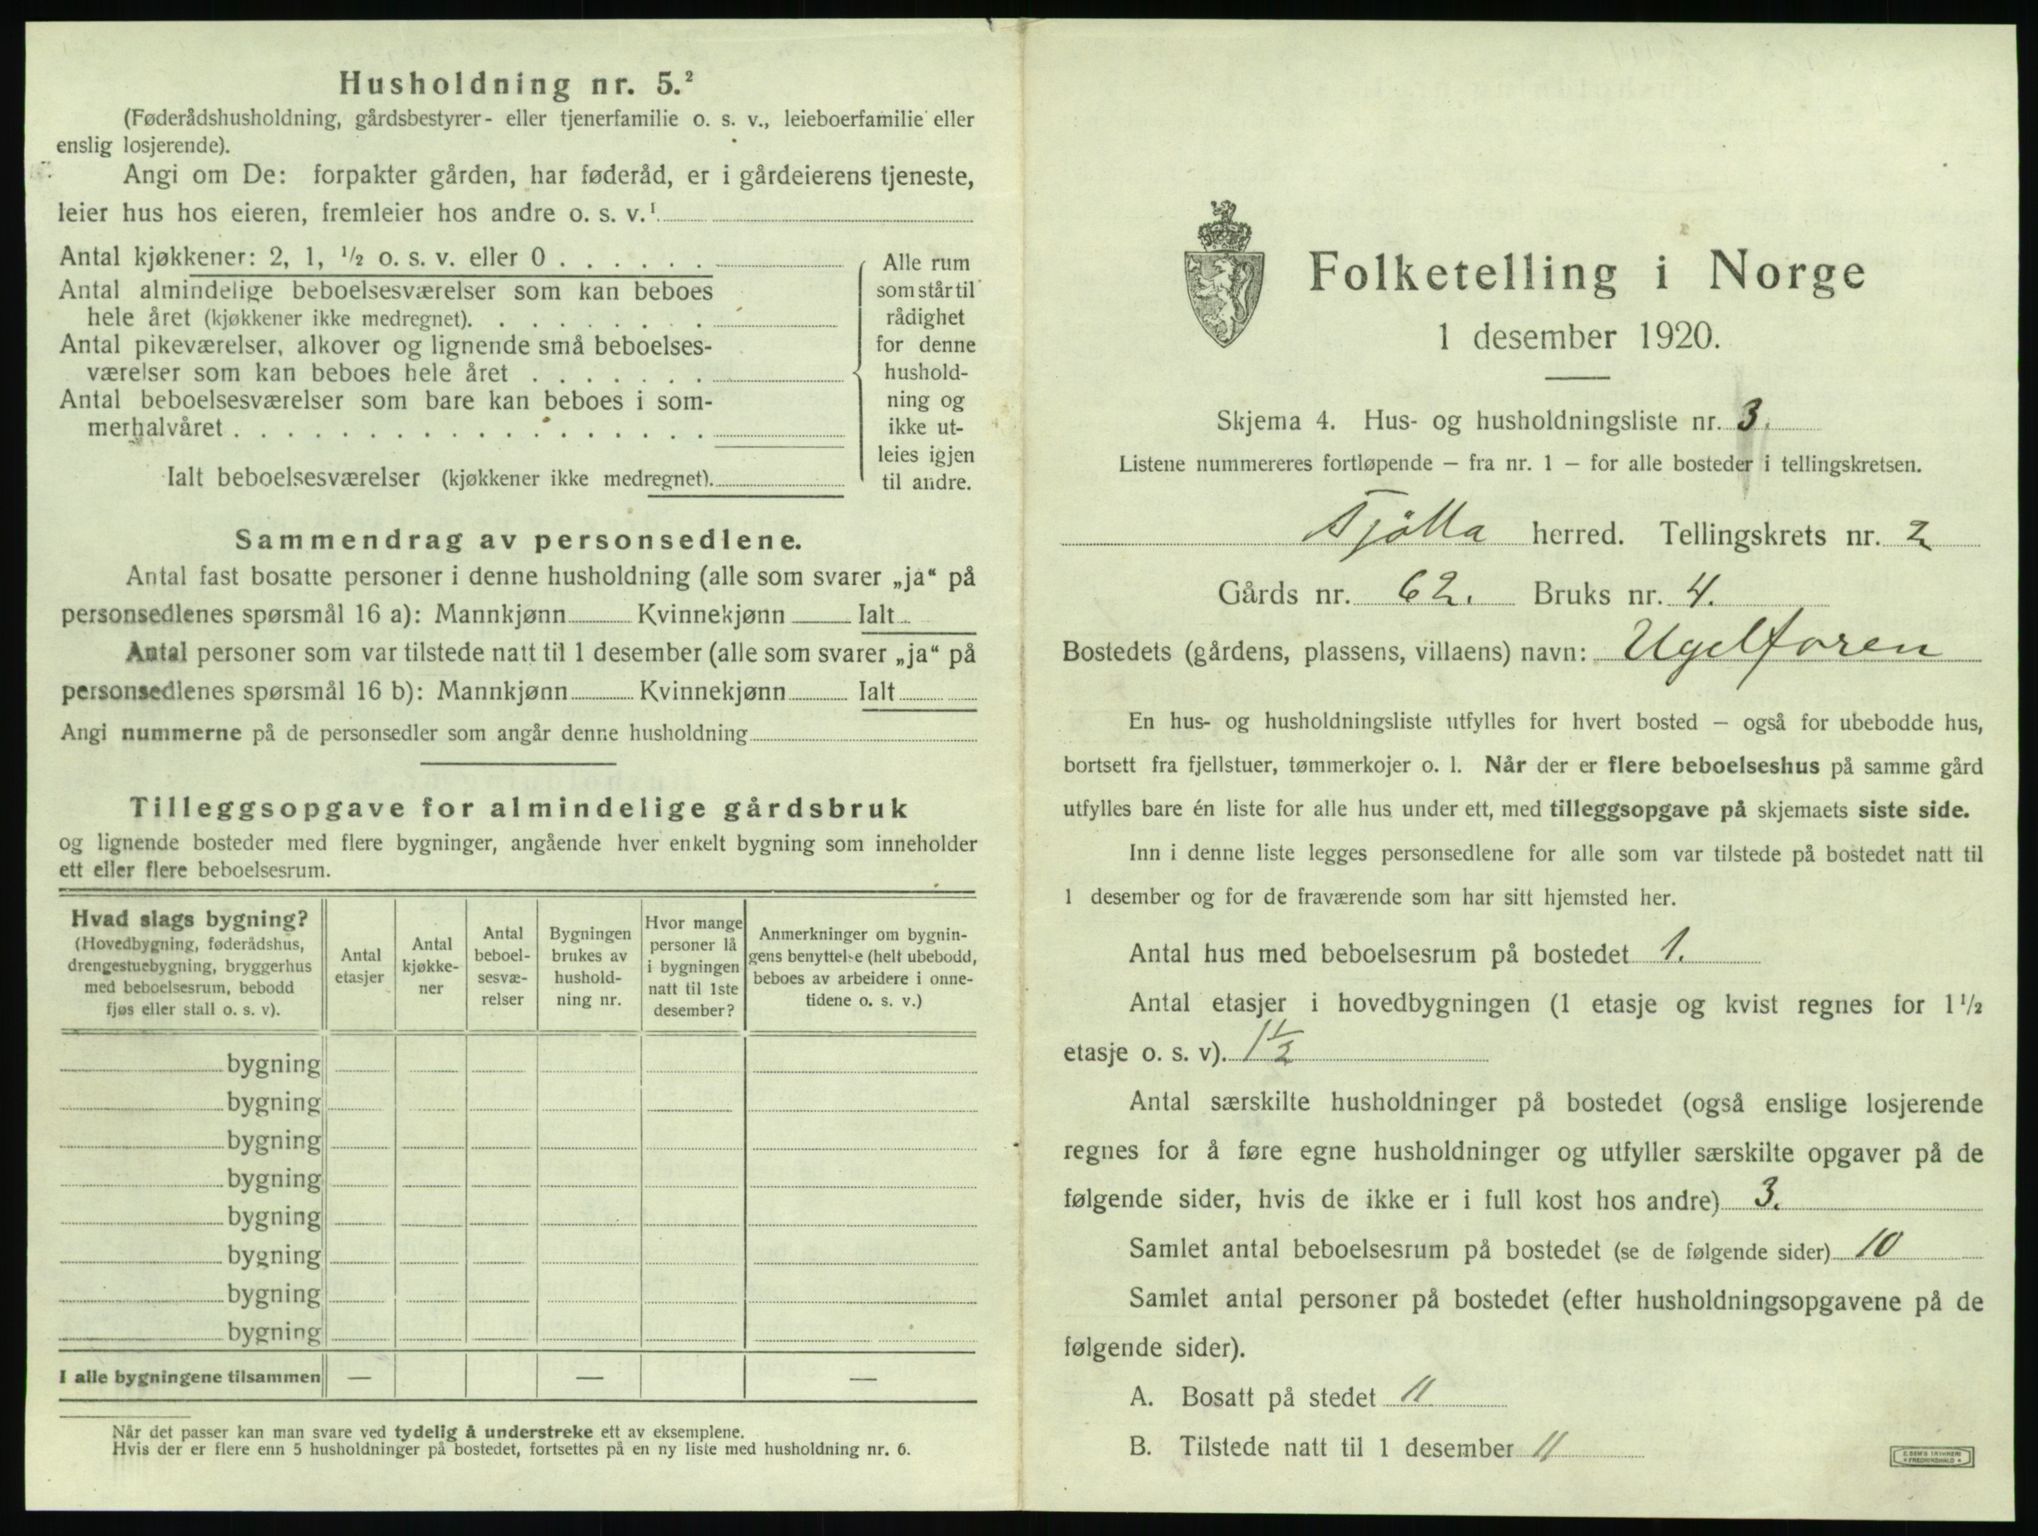 Husholdning nr. 5.²
(Føderådshusholdning, gårdsbestyrer- eller tjenerfamilie o. s. v., leieboerfamilie eller
enslig losjerende).
Angi om De: forpakter gården, har føderåd, er i gårdeierens tjeneste,
leier hus hos eieren, fremleier hos andre o. s. v.¹
Antal kjøkkener: 2, 1, ½ o. s. v. eller 0 . . . . . .
Antal almindelige beboelsesværelser som kan beboes
hele året (kjøkkener ikke medregnet). . . . . . . . .
Antal pikeværelser, alkover og lignende små beboelses-
værelser som kan beboes hele året . . . . . . .
Antal beboelsesværelser som bare kan beboes i som-
merhalvåret . . . . . . . . . . . . . . . . . .
Ialt beboelsesværelser (kjøkkener ikke medregnet).
Alle rum
som står til
rådighet
for denne
hushold-
ning og
ikke ut-
leies igjen
til andre.
Sammendrag av personsedlene.
Antal fast bosatte personer i denne husholdning (alle som svarer „ja“ på
personsedlenes spørsmål 16 a): Mannkjønn Kvinnekjønn Ialt
Antal personer som var tilstede natt til 1 desember (alle som svarer „ja“ på
personsedlenes spørsmål 16 b): Mannkjønn Kvinnekjønn Ialt
Angi nummerne på de personsedler som angår denne husholdning
Tilleggsopgave for almindelige gårdsbruk
og lignende bosteder med flere bygninger, angående hver enkelt bygning som inneholder
ett eller flere beboelsesrum.
Hvad slags bygning?
(Hovedbygning, føderådshus,
drengestuebygning, bryggerhus
med beboelsesrum, bebodd
fjøs eller stall o. s. v).
Antal
etasjer
Antal
kjøkke-
ner
Antal
beboel-
sesvæ-
relser
Bygningen
brukes av
hushold-
ning nr.
Hvor mange
personer lå
i bygningen
natt til 1ste
desember?
Anmerkninger om bygnin-
gens benyttelse (helt ubebodd,
beboes av arbeidere i onne-
tidene o. s. v.)
bygning
bygning
bygning
bygning
bygning
bygning
bygning
bygning
I alle bygningene tilsammen — — —
Når det passer kan man svare ved tydelig å understreke ett av eksemplene.
Hvis der er flere enn 5 husholdninger på bostedet, fortsettes på en ny liste med husholdning nr. 6.
Folketelling i Norge
1 desember 1920.
Skjema 4. Hus- og husholdningsliste nr. 3.
Listene nummereres fortløpende – fra nr. 1 – for alle bosteder i tellingskretsen.
Tjøtta herred. Tellingskrets nr. 2
Gårds nr. 62. Bruks nr. 4.
Bostedets (gårdens, plassens, villaens) navn: Ugelforen
En hus- og husholdningsliste utfylles for hvert bosted – også for ubebodde hus,
bortsett fra fjellstuer, tømmerkojer o. l. Når der er flere beboelseshus på samme gård
utfylles bare én liste for alle hus under ett, med tilleggsopgave på skjemaets siste side.
Inn i denne liste legges personsedlene for alle som var tilstede på bostedet natt til
1 desember og for de fraværende som har sitt hjemsted her.
Antal hus med beboelsesrum på bostedet 1.
Antal etasjer i hovedbygningen (1 etasje og kvist regnes for 1½
etasje o. s. v). 1½
Antal særskilte husholdninger på bostedet (også enslige losjerende
regnes for å føre egne husholdninger og utfyller særskilte opgaver på de
følgende sider, hvis de ikke er i full kost hos andre) 3.
Samlet antal beboelsesrum på bostedet (se de følgende sider) 10
Samlet antal personer på bostedet (efter husholdningsopgavene på de
følgende sider).
A. Bosatt på stedet 11
B. Tilstede natt til 1 desember 11